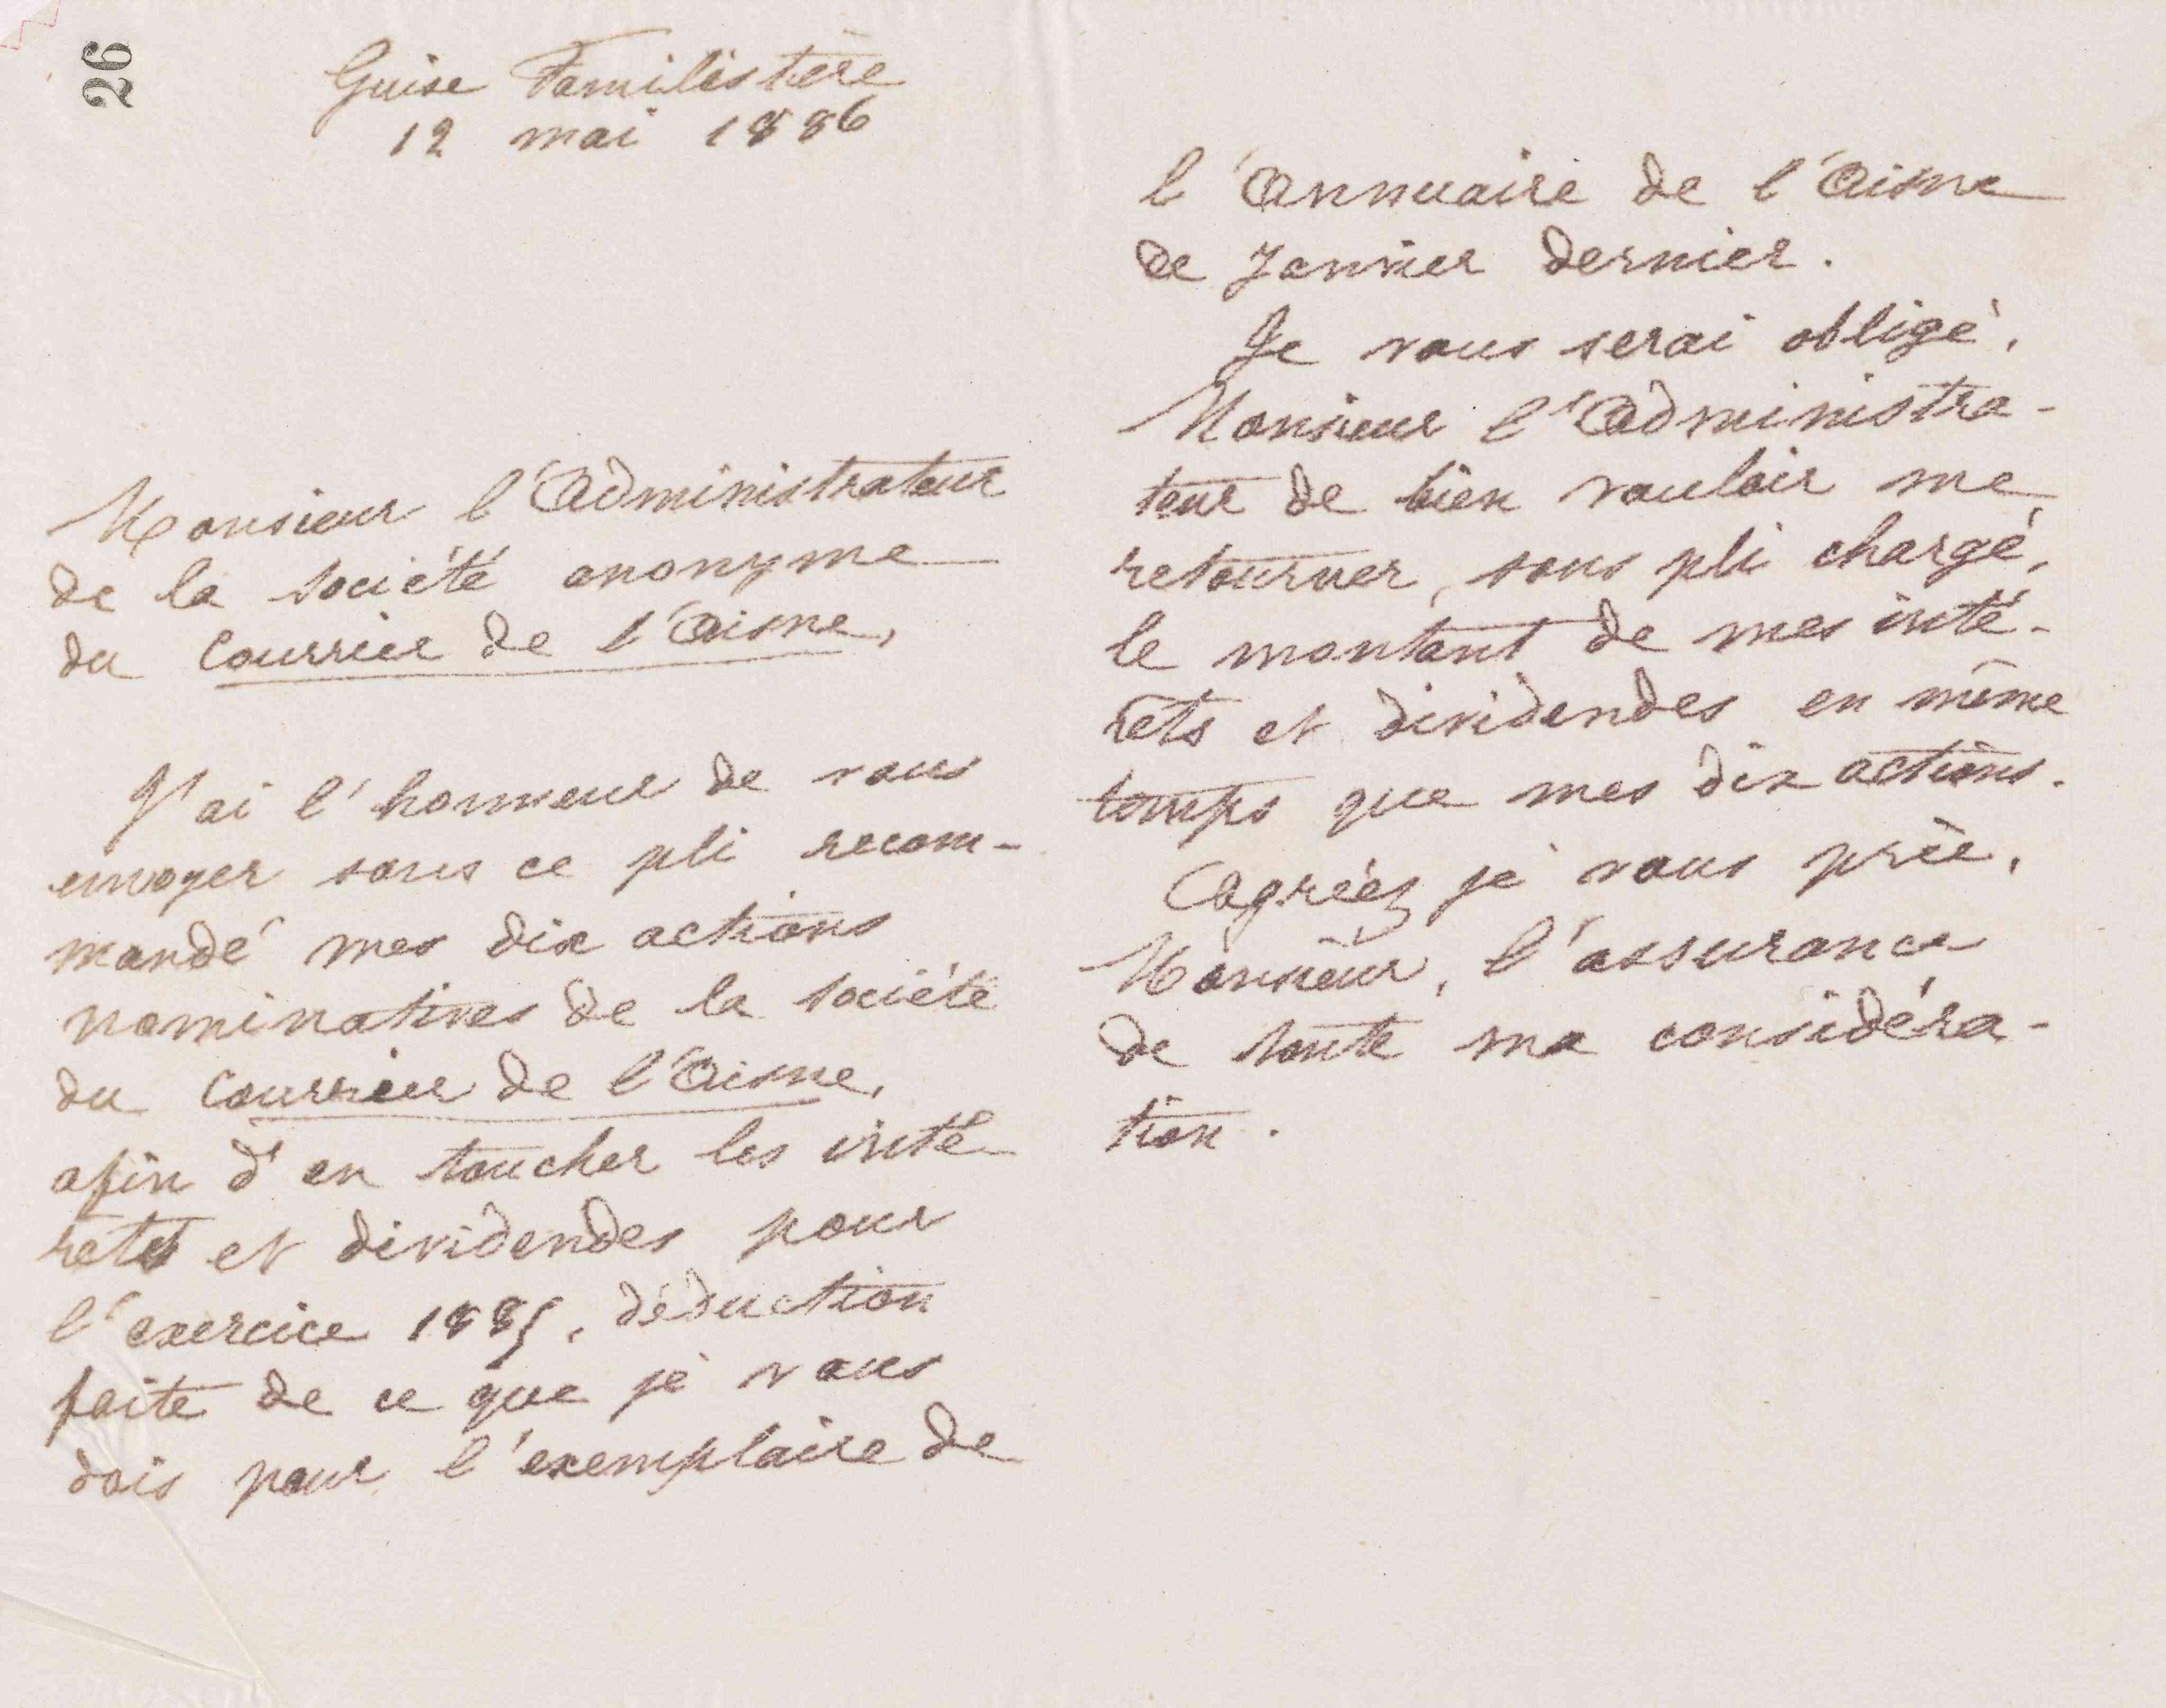 26
Guise Familistère
12 mai 1886
Monsieur l'Administrateur
de la Société anonyme
du Courrier de l'Aisne,
J'ai l'honneur de vous
envoyer sous ce pli recom-
mandé mes dix actions
nominatives de la Société
du Courrier de l'Aisne,
afin d'en toucher les inté
rêts et dividendes pour
l'exercice 1885, déduction
faite de ce que je vous
dois pour l'exemplaire de
l'Annuaire de l'Aisne
de Janvier dernier.
Je vous serai obligé,
Monsieur l'Administra-
teur de bien vouloir me
retourner, sous pli chargé,
le montant de mes inté-
rêts et dividendes en même
temps que mes dix actions.
Agréez je vous prie,
Monsieur, l'assurance
de toute ma considéra-
tion.